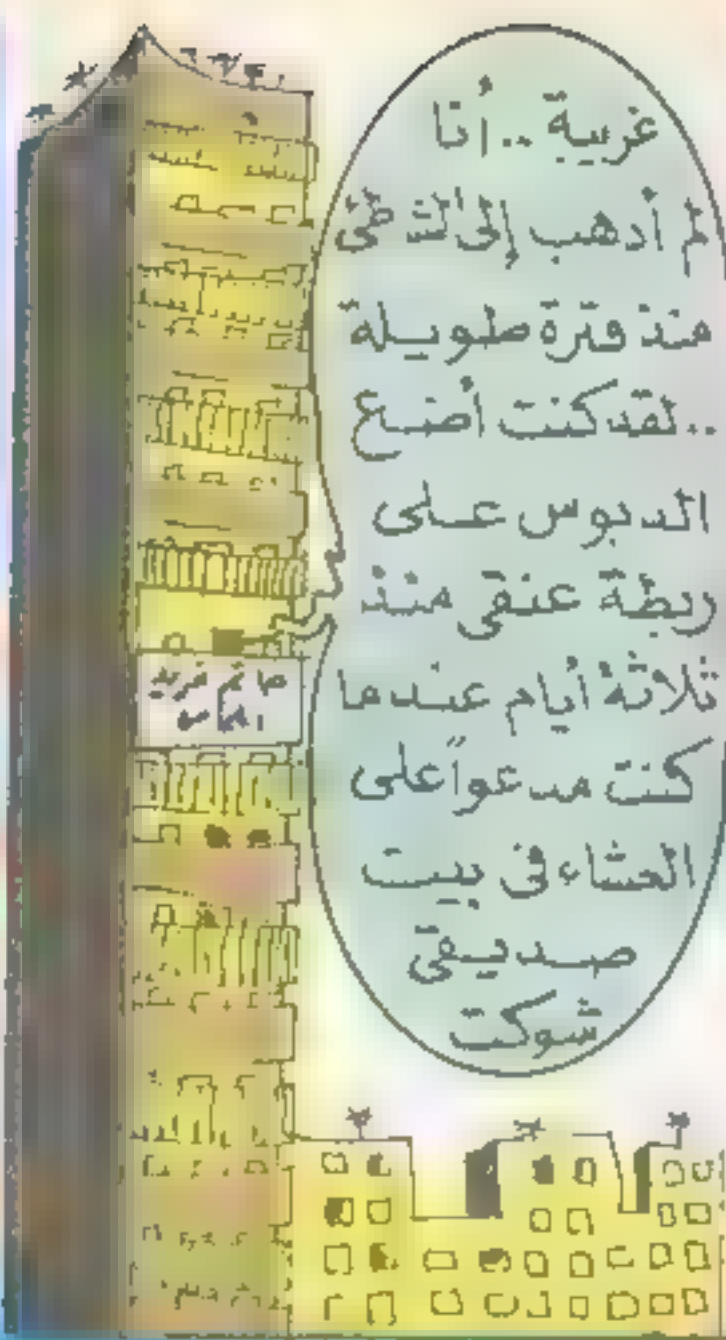 غريبة .. أنا
لم أدهب إلى الشاطئ
منذ فترة طويلة
.. لقد كنت أضع
الدبوس على
ربطة عنقى منذ
ثلاثة أيام عندما
كنت مدعواً على
العشاء فى بيت
صديقى
شوكت